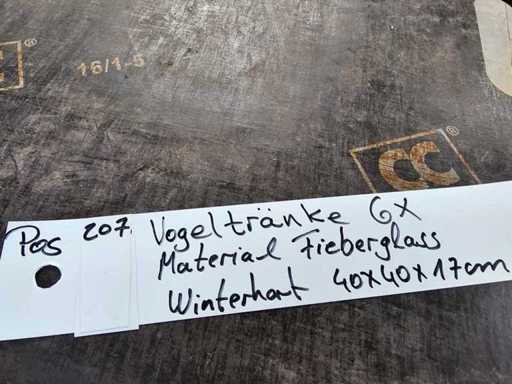 CC®
16/1-5
CC®
Pos 207. Vogeltränke 6x
Material Fieberglass
Winterhart 40x40x17cm